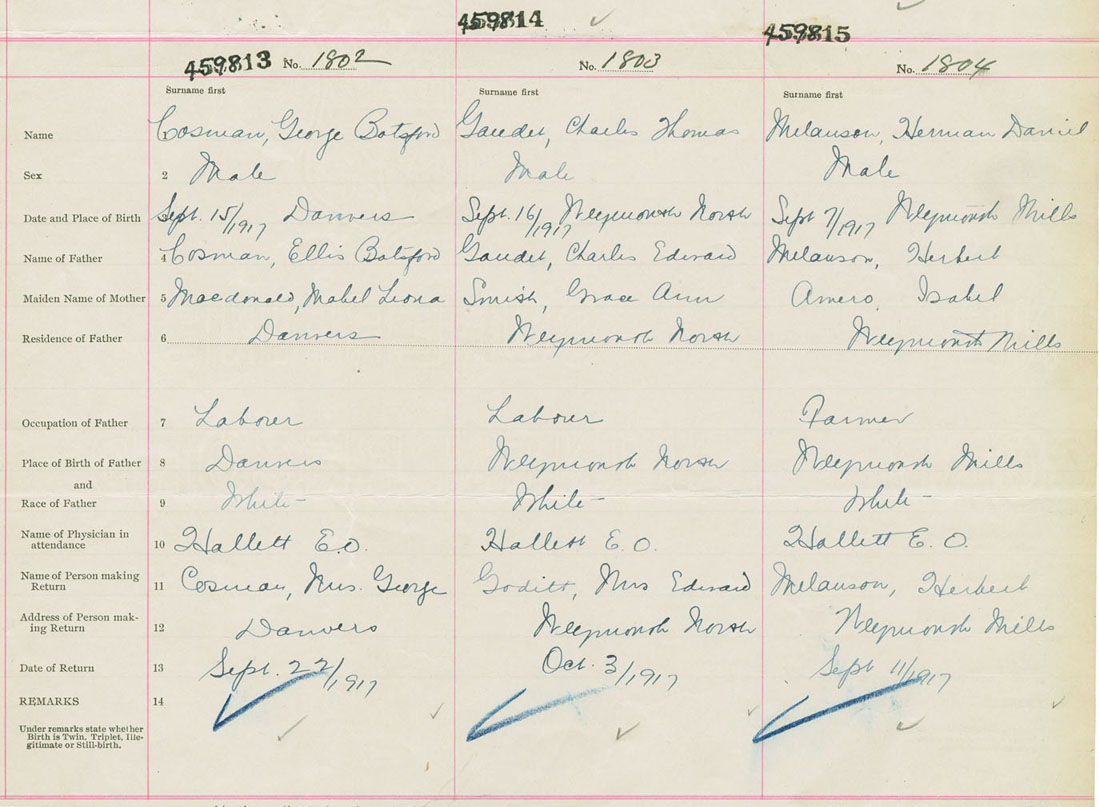 459813 No. 1802
459814
No. 1803
459815
No. 1804
Surname first Surname first Surname first
Name Cosman, George Botsford Gaudet, Charles Thomas Melanson, Herman Daniel
Sex 2 Male Male Male
Date and Place of Birth 3 Sept. 15/1917 Danvers Sept. 16/1917 Weymouth North Sept 7/1917 Weymouth Mills
Name of Father 4 Cosman, Ellis Botsford Gaudet, Charles Edward Melanson, Herbert
Maiden Name of Mother 5 Macdonald, Mabel Leona Smith, Grace Ann Amero, Isabel
Residence of Father 6 Danvers Weymouth North Weymouth Mills
Occupation of Father 7 Laborer Laborer Farmer
Place of Birth of Father 8 Danvers Weymouth North Weymouth Mills
and
Race of Father 9 White White White
Name of Physician in
attendance 10 Hallett E.O. Hallett E.O. Hallett E.O.
Name of Person making
Return 11 Cosman, Mrs. George Goditt, Mrs Edward Melanson, Herbert
Address of Person mak-
ing Return 12 Danvers Weymouth North Weymouth Mills
Date of Return 13 Sept. 22/1917 Oct. 3/1917 Sept 11/1917
REMARKS 14
Under remarks state whether
Birth is Twin, Triplet, Ille-
gitimate or Still-birth.